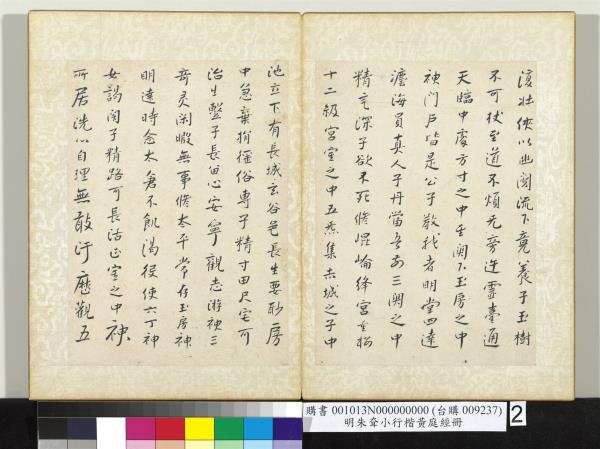 復壯俠以幽闕流下竟養子玉樹
不可杖至道不煩无旁迕靈臺通
天臨中處方寸之中至闕下玉房之中
神門戶皆是公子教我者明堂四達
灋海員真人子丹當吾前三關之中
精气深子欲不死修崐崘絳宮重樓
十二級宮室之中五采集赤城之子中
池立下有長城玄谷邑長生要眇房
中急棄捐淫俗專子精寸田尺宅可
治生繫子長留心安寧觀志游神三
奇灵閑暇無事修太平常存玉房神
明達時念太倉不飢渴役使六丁神
女謁閉子精路可長活正室之中神
所居洗心自理無敢汙歷觀五
購書 001013N000000000 (台購 009237)
明朱耷小行楷黃庭經冊
2